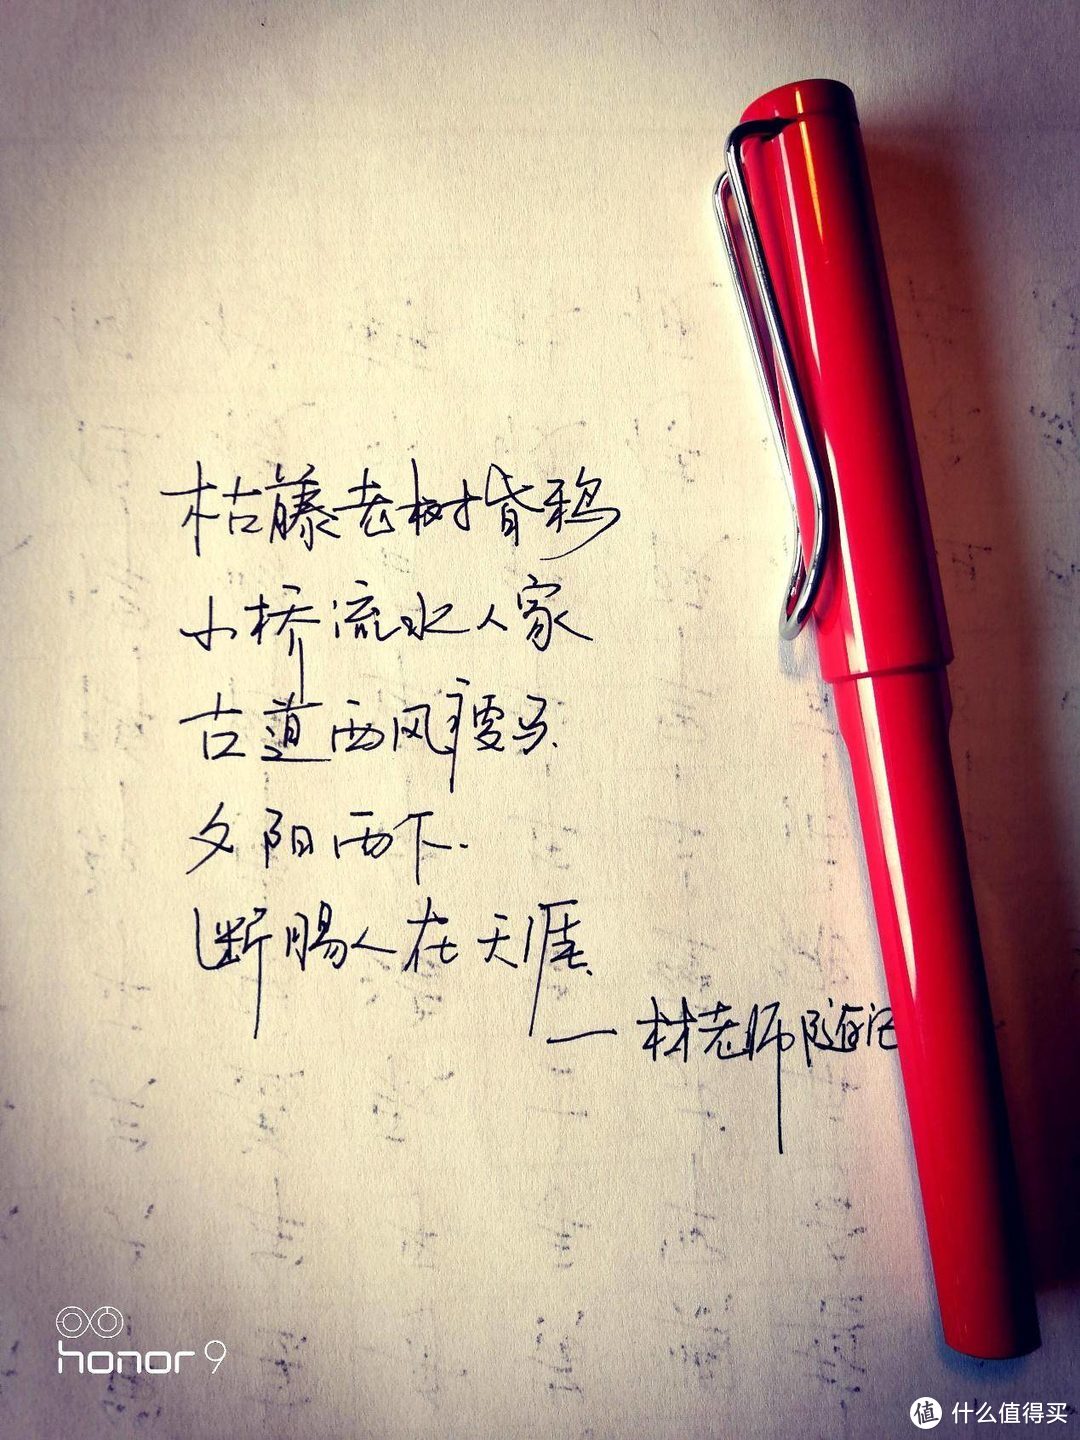 枯藤老树昏鸦
小桥流水人家
古道西风瘦马.
夕阳西下.
断肠人在天涯.
一林老师随记
honor 9
值 什么值得买